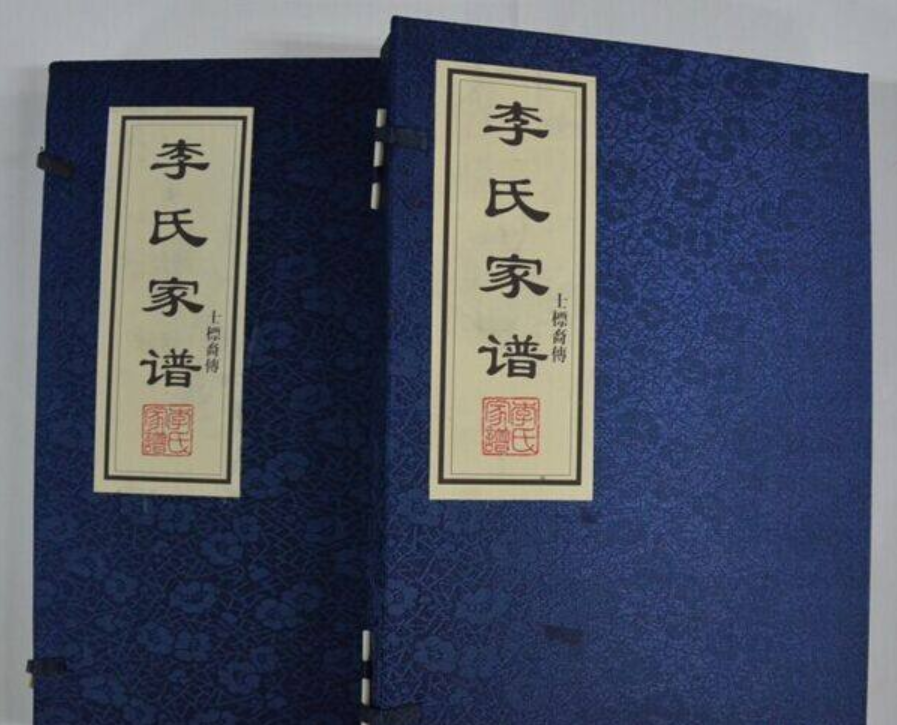 李氏家谱
士標裔傳
李氏家譜
李氏家谱
士標裔傳
李氏家譜